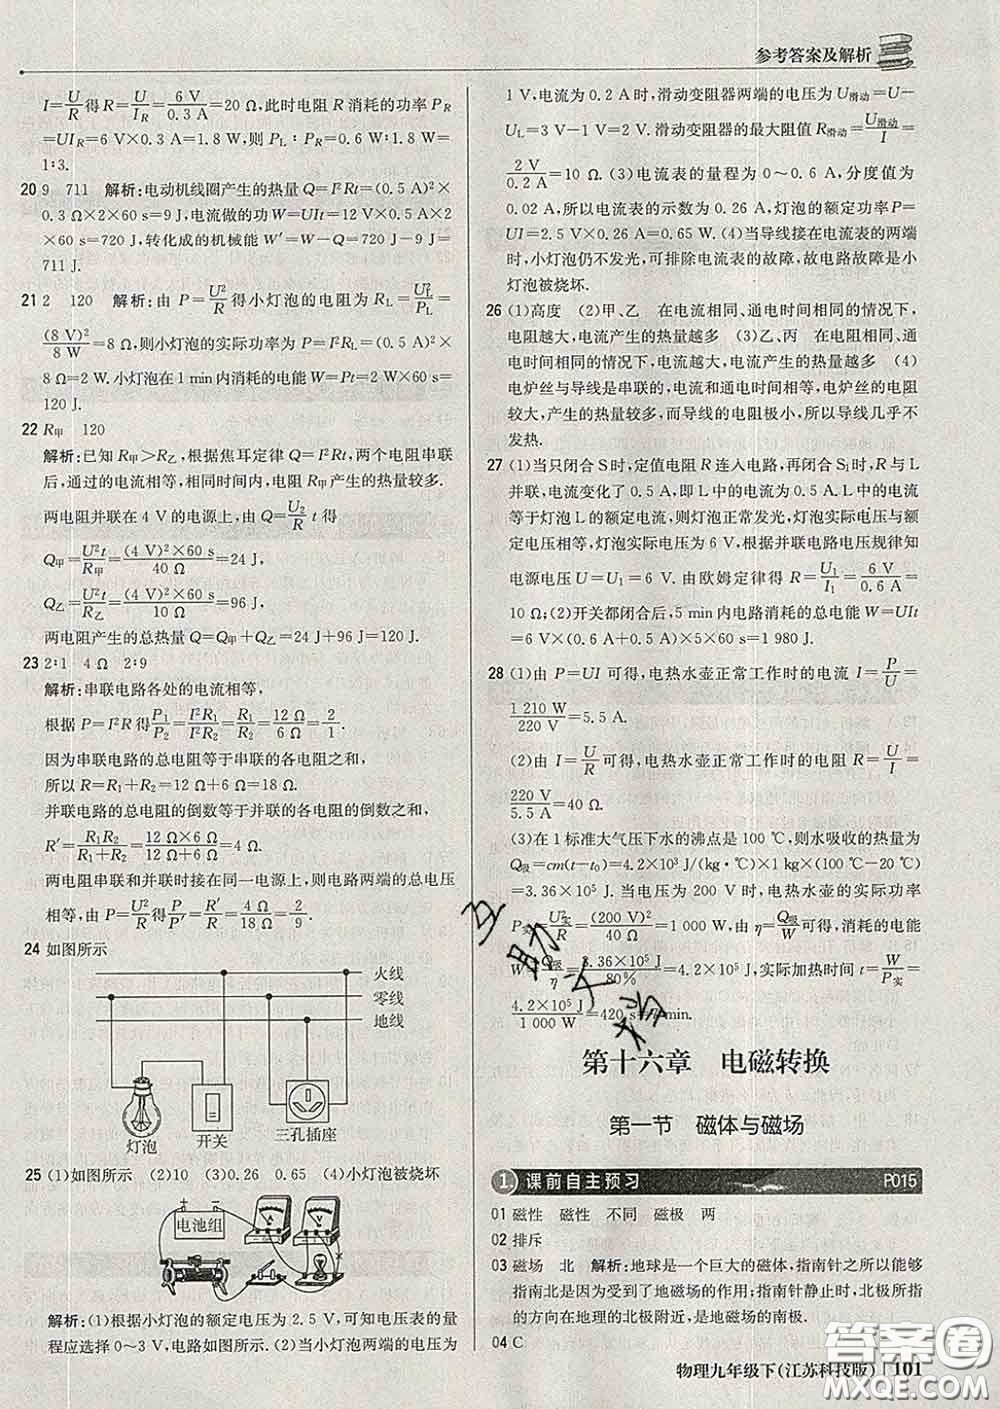 参考答案及解析
I=U/R得R=U/I_R=6 V/0.3 A=20 Ω,此时电阻R消耗的功率P_R
=UI_R=6 V×0.3 A=1.8 W,则 P_L∶P_R=0.6 W∶1.8 W=
1∶3.
20 9 711 解析:电动机线圈产生的热量Q=I²Rt=(0.5 A)²×
0.3 Ω×2×60 s=9 J,电流做的功W=UIt=12 V×0.5 A×2
×60 s=720 J,转化成的机械能 W′=W-Q=720 J-9 J=
711 J.
21 2 120 解析:由 P=U²/R得小灯泡的电阻为 R_L=U_L²/P_L=
(8 V)²/8 W=8 Ω,则小灯泡的实际功率为 P=I²R=(0.5 A)²×
8 Ω=2 W.小灯泡在1 min内消耗的电能W=Pt=2 W×60 s=
120 J.
22 R甲 120
解析:已知R甲>R乙,根据焦耳定律Q=I²Rt,两个电阻串联
后,通过的电流相等,相同时间内,电阻R甲产生的热量较多.
两电阻并联在 4 V 的电源上,由 Q=U2/R t 得
Q甲=U²t/R甲=(4 V)²×60 s/40 Ω=24 J,
Q乙=U²t/R乙=(4 V)²×60 s/10 Ω=96 J,
两电阻产生的总热量Q=Q甲+Q乙=24 J+96 J=120 J.
23 2∶1 4 Ω 2∶9
解析:串联电路各处的电流相等,
根据 P=I²R得P₁/P₂=I²R₁/I²R₂=R₁/R₂=12 Ω/6 Ω=2/1.
因为串联电路的总电阻等于串联的各电阻之和,
所以 R=R₁+R₂=12 Ω+6 Ω=18 Ω.
并联电路的总电阻的倒数等于并联的各电阻的倒数之和,
R′=R₁R₂/R₁+R₂=12 Ω×6 Ω/12 Ω+6 Ω=4 Ω.
两电阻串联和并联时接在同一电源上,则电路两端的总电压
相等,由 P=U²/R得P/P′=R′/R=4 Ω/18 Ω=2/9.
24 如图所示
火线
零线
地线
灯泡 开关 三孔插座
25 (1)如图所示 (2)10 (3)0.26 0.65 (4)小灯泡被烧坏
电池组
解析:(1)根据小灯泡的额定电压为 2.5 V,可知电压表的量
程应选择 0~3 V,电路如图所示.(2)当小灯泡两端的电压为
1 V,电流为 0.2 A时,滑动变阻器两端的电压为U滑动=U-
U_L=3 V-1 V=2 V.滑动变阻器的最大阻值R滑动=U滑动/I=
2 V/0.2 A=10 Ω.(3)电流表的量程为 0~0.6 A,分度值为
0.02 A,所以电流表的示数为 0.26 A,灯泡的额定功率P=
UI=2.5 V×0.26 A=0.65 W.(4)当导线接在电流表的两端
时,小灯泡仍不发光,可排除电流表的故障,故电路故障是小
灯泡被烧坏.
26 (1)高度 (2)甲、乙 在电流相同、通电时间相同的情况下,
电阻越大,电流产生的热量越多 (3)乙、丙 在电阻相同、通
电时间相同的情况下,电流越大,电流产生的热量越多 (4)
电炉丝与导线是串联的,电流和通电时间相等,电炉丝的电阻
较大,产生的热量较多,而导线的电阻极小,所以导线几乎不
发热.
27 (1)当只闭合 S时,定值电阻 R连入电路,再闭合 S₁时,R与L
并联,电流变化了 0.5 A,即 L 中的电流为 0.5 A. L 中的电流
等于灯泡 L 的额定电流,则灯泡正常发光,灯泡实际电压与额
定电压相等,灯泡实际电压为 6 V,根据并联电路电压规律知
电源电压 U=U₁=6 V.由欧姆定律得 R=U₁/I₁=6 V/0.6 A=
10 Ω;(2)开关都闭合后,5 min内电路消耗的总电能 W=UIt
=6 V×(0.6 A+0.5A)×5×60 s=1 980 J.
28 (1)由 P=UI 可得,电热水壶正常工作时的电流 I=P/U=
1 210 W/220 V=5.5 A.
(2)由 I=U/R可得,电热水壶正常工作时的电阻 R=U/I=
220 V/5.5 A=40 Ω.
(3)在1标准大气压下水的沸点是 100 ℃,则水吸收的热量为
Q吸=cm(t-t₀)=4.2×10³ J/(kg·℃)×1 kg×(100 ℃-20 ℃)
=3.36×10⁵ J.当电压为 200 V时,电热水壶的实际功率
P实=U实²/R=(200 V)²/40 Ω=1 000 W.由 η=Q吸/W可得,消耗的电能
W=Q吸/η=3.36×10⁵ J/80%=4.2×10⁵ J,实际加热时间 t=W/P实=
4.2×10⁵ J/1 000 W=420 s=7 min.
第十六章 电磁转换
第一节 磁体与磁场
1. 课前自主预习 P015
01 磁性 磁性 不同 磁极 两
02 排斥
03 磁场 北 解析:地球是一个巨大的磁体,指南针之所以能够
指南北是因为受到了地磁场的作用;指南针静止时,北极所指
的方向在地理的北极附近,是地磁场的南极.
04 C
物理九年级下(江苏科技版) 101
答案圈
MXQE.COM